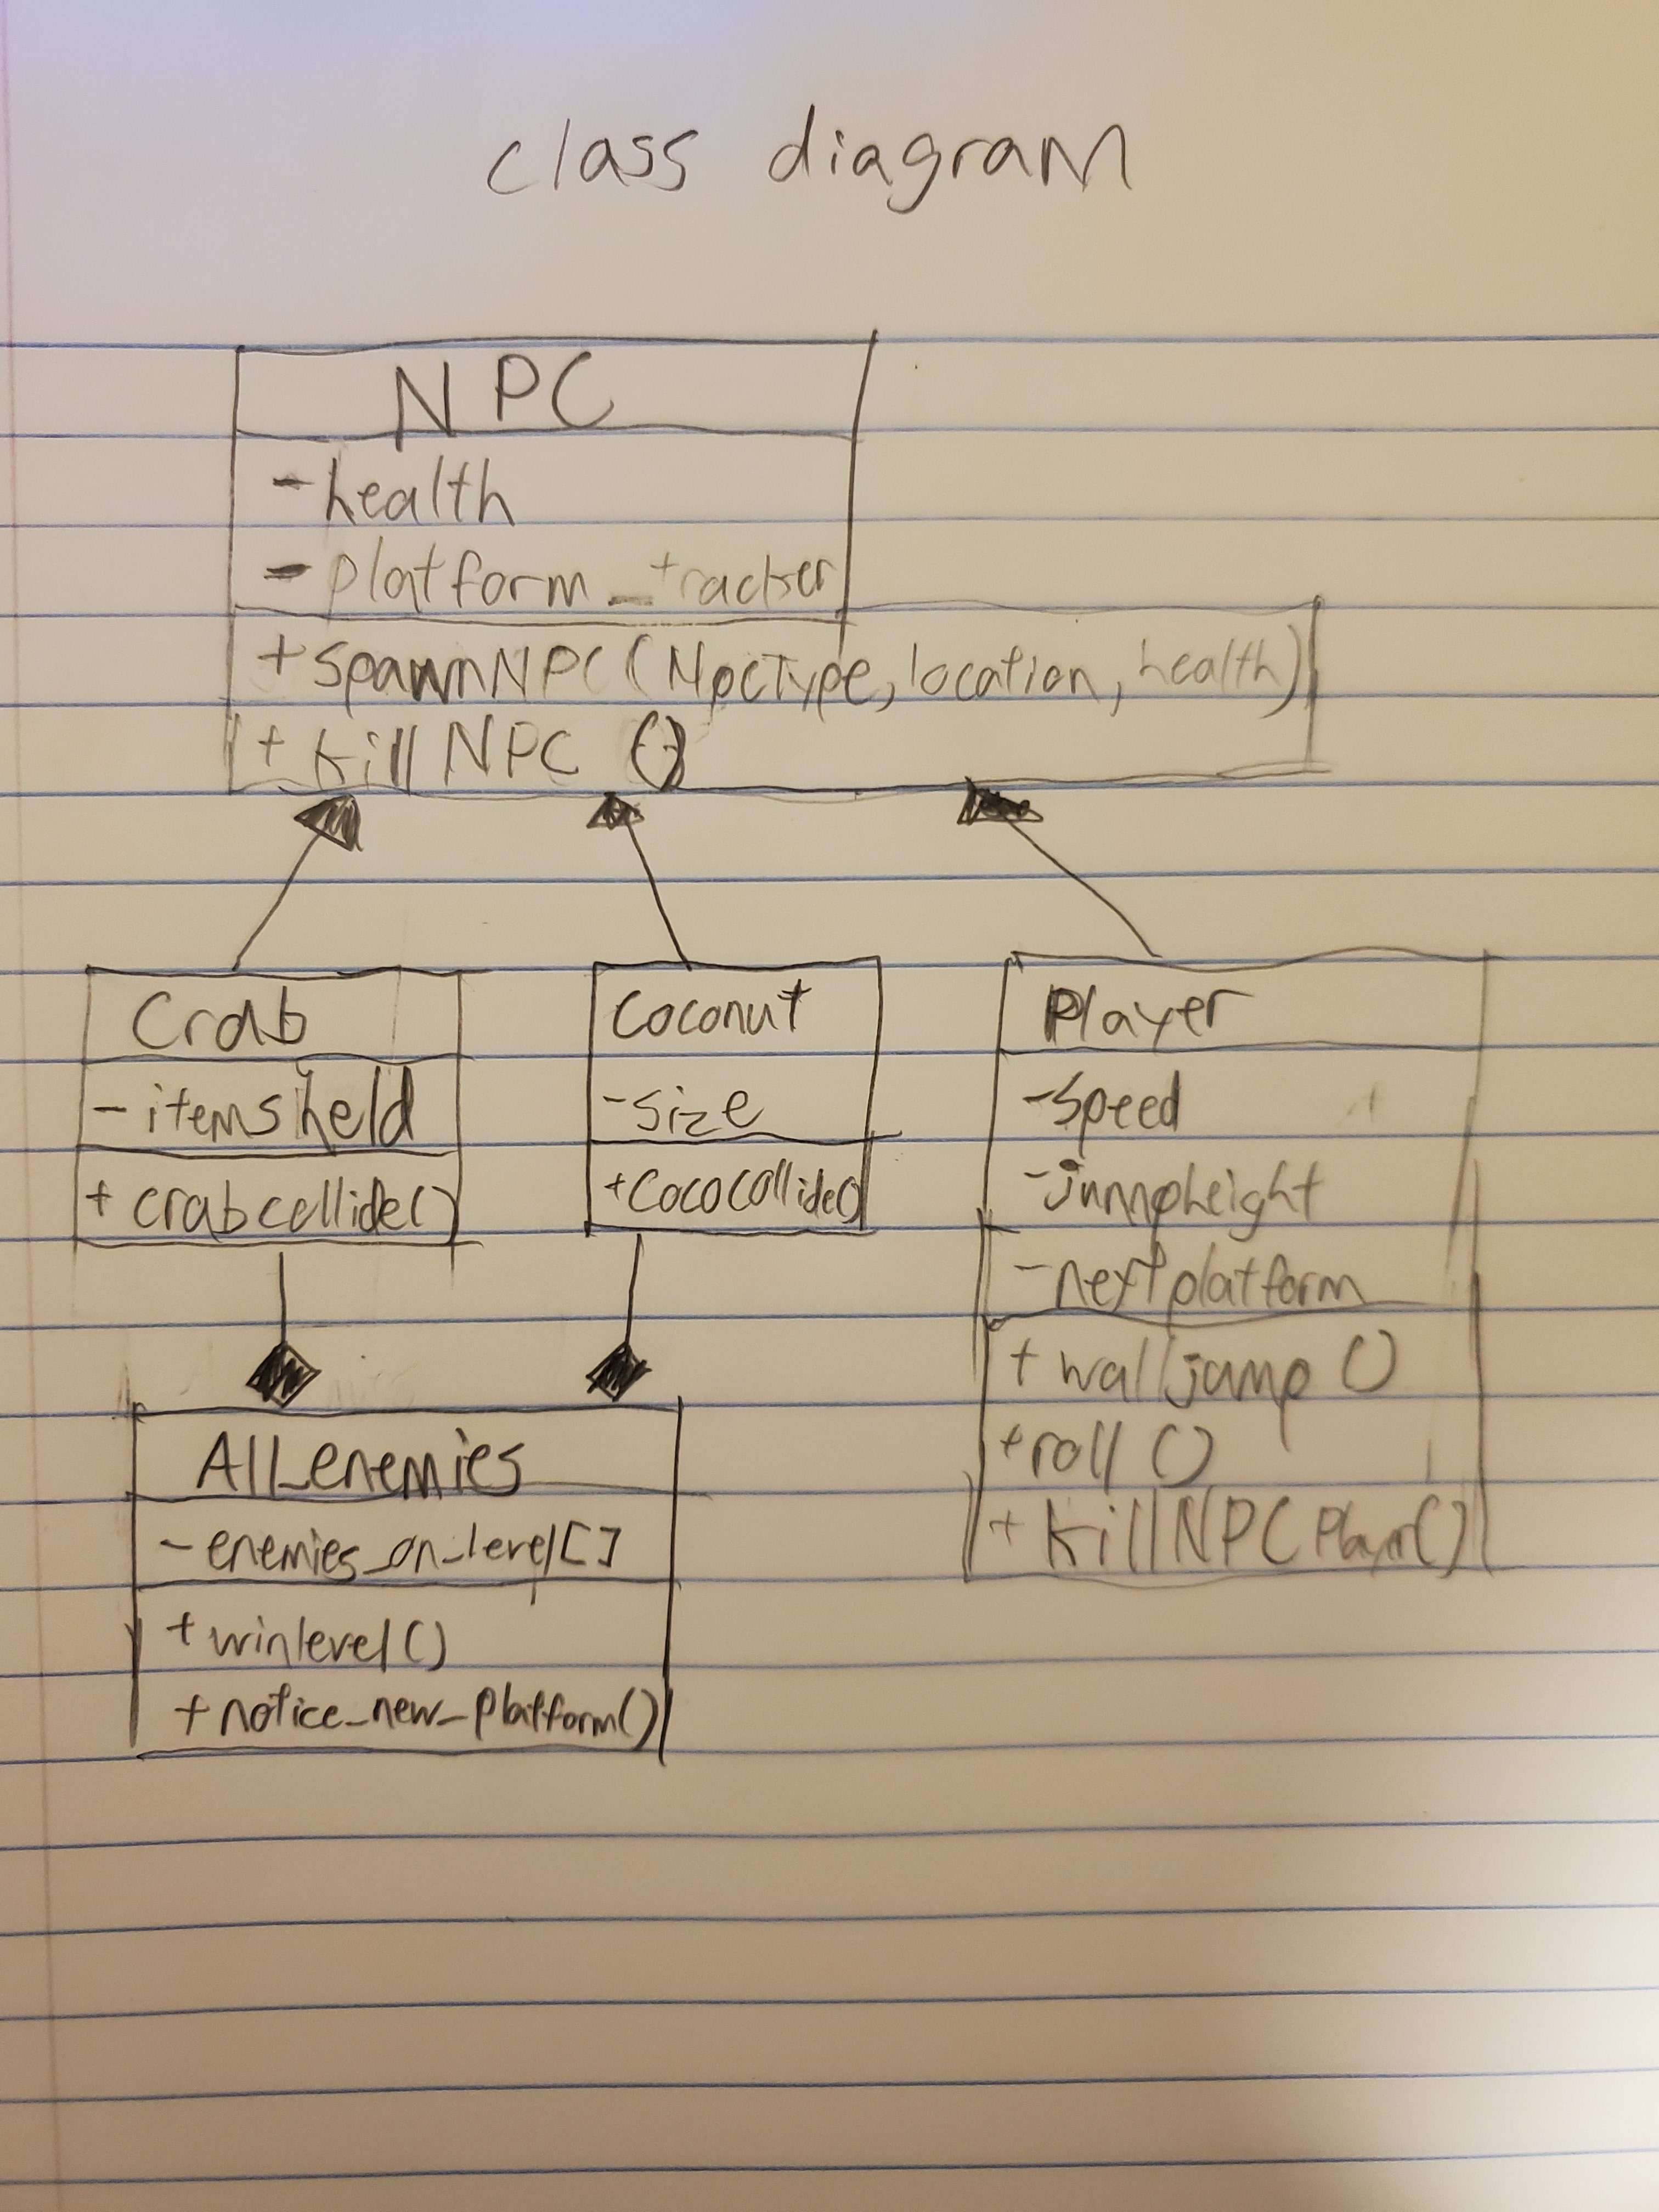 class diagram
NPC
-health
-platform_tracker
+spawnNPC(NpcType, location, health)
+killNPC()
Crab
-itemsheld
+crabcollide()
Coconut
-size
+cococollide()
Player
-speed
-jumpheight
-nextplatform
+walljump()
+roll()
+KillNPCPlayer()
All_enemies
-enemies_on_level[]
+winlevel()
+notice_new_platform()